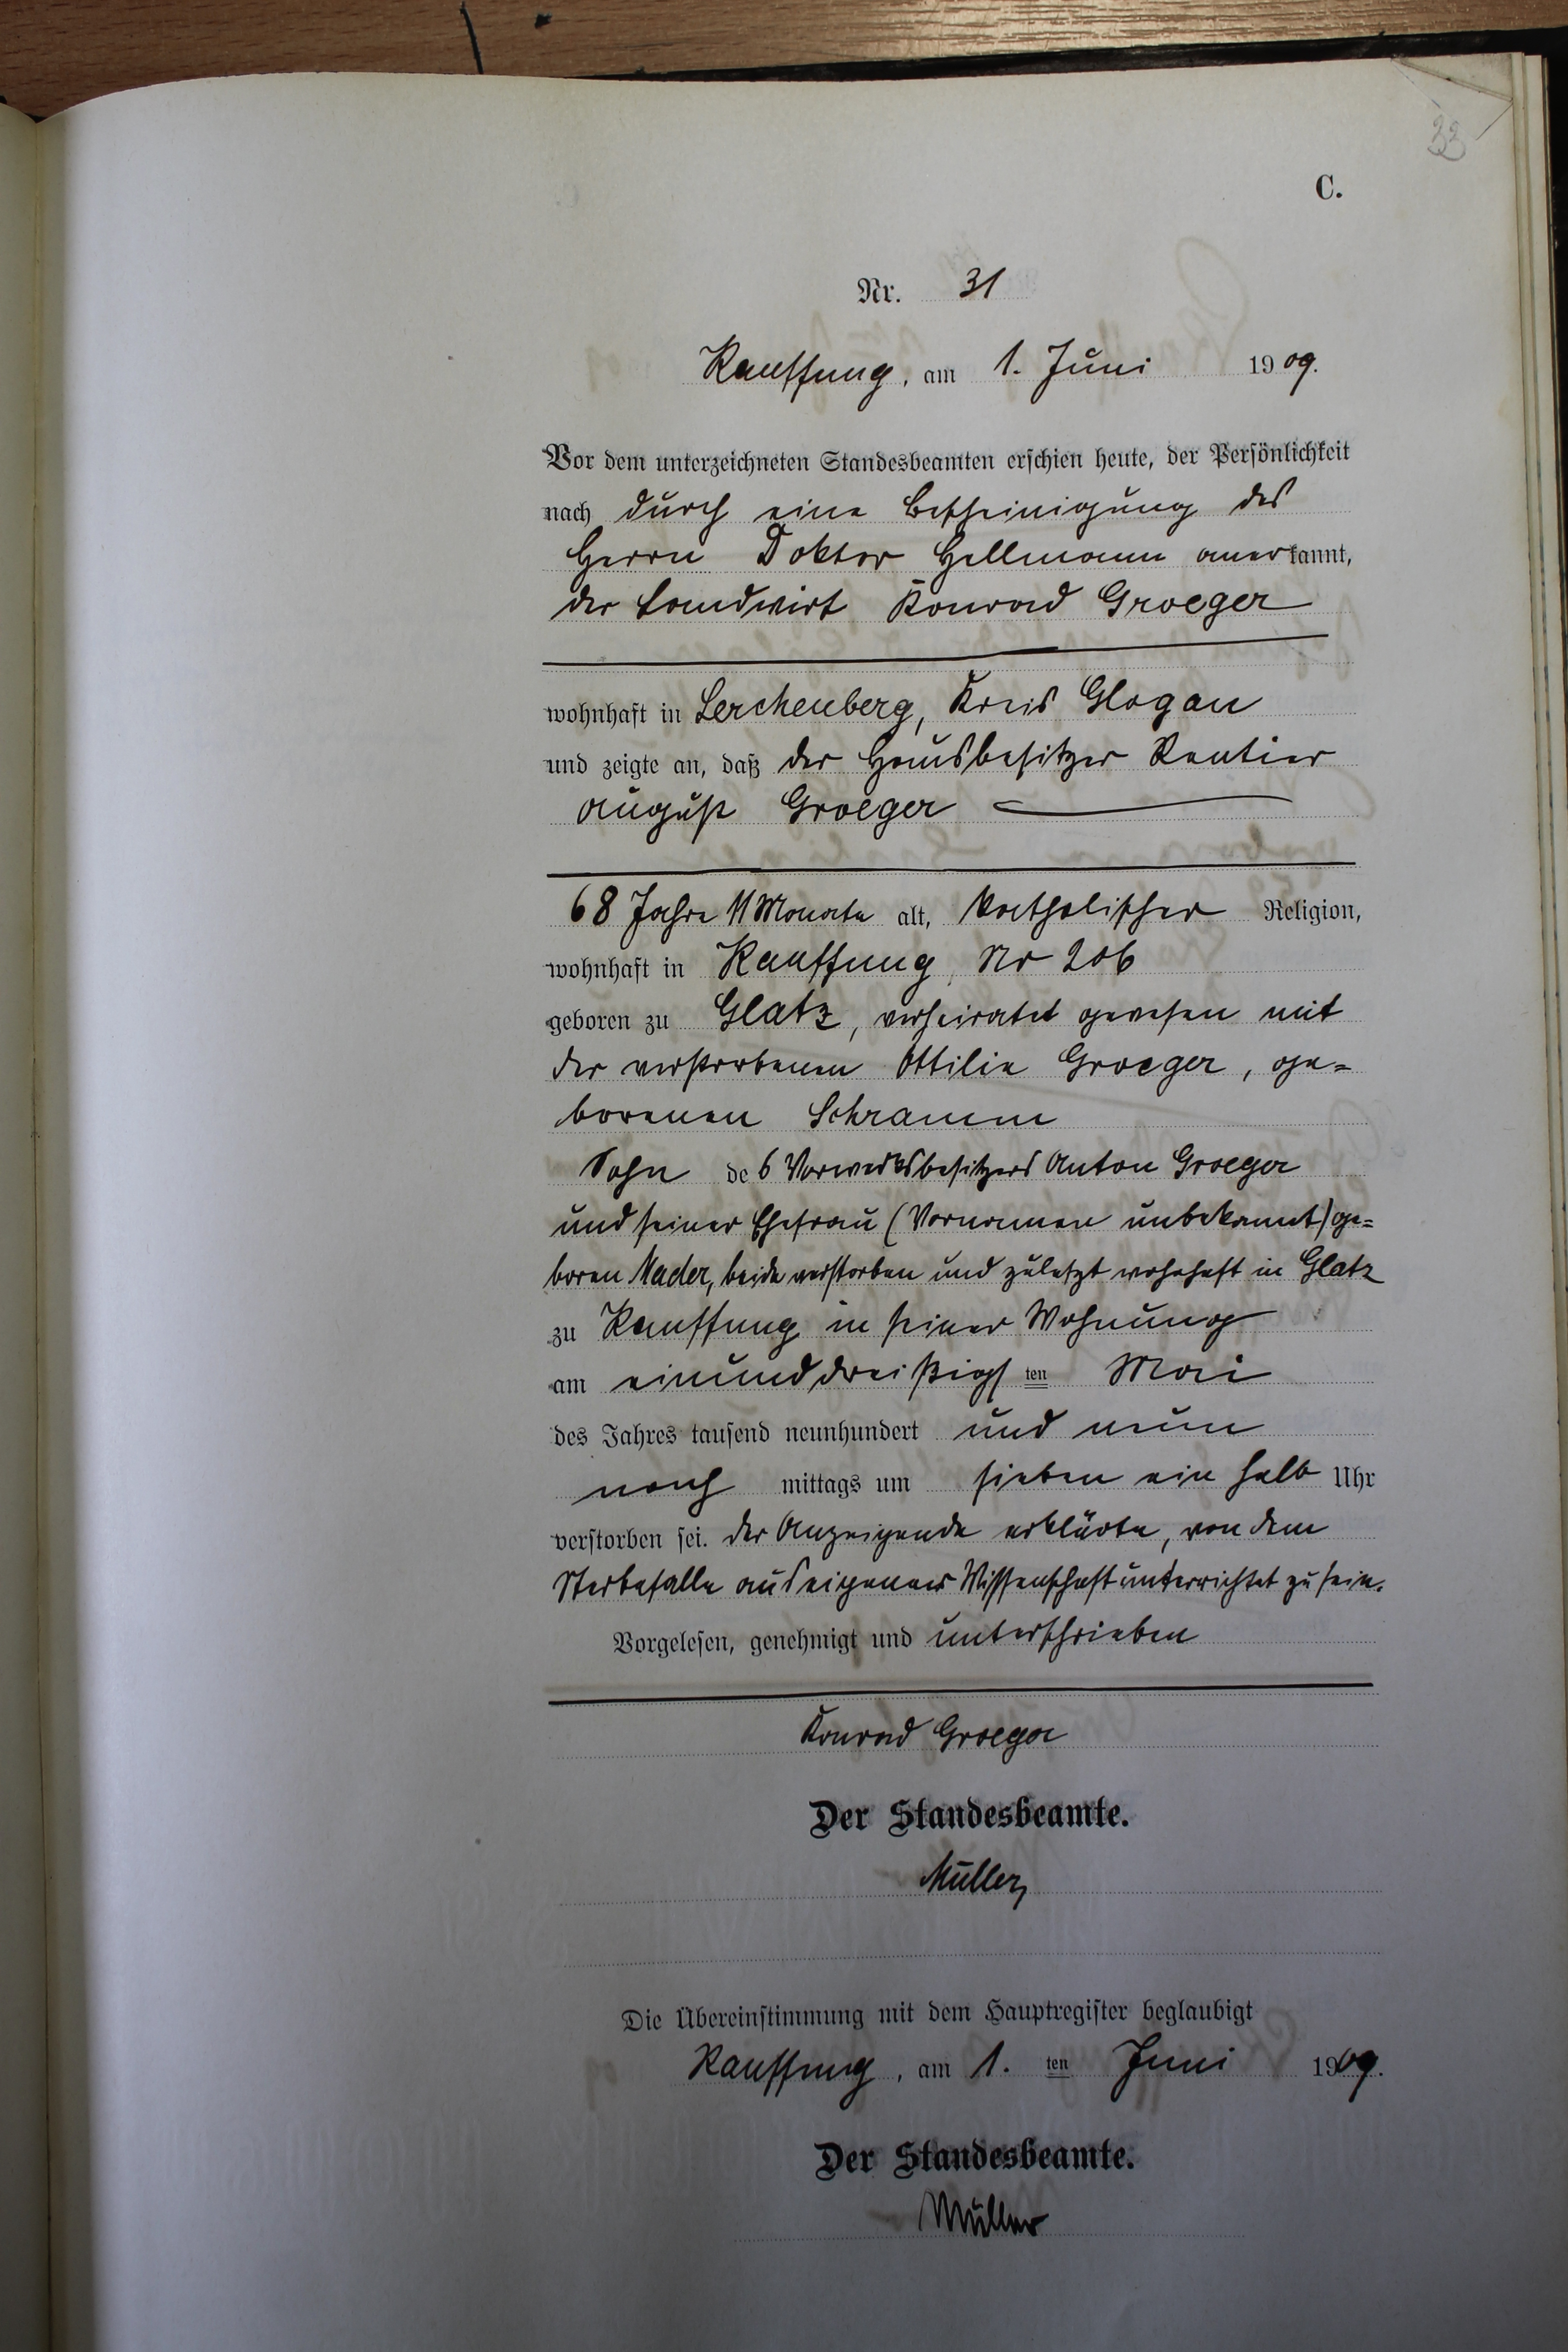 33
C.
Nr. 31
Kauffung, am 1. Juni 1909.
Vor dem unterzeichneten Standesbeamten erschien heute, der Persönlichkeit
nach durch eine Bescheinigung des
Herrn Doktor Hellmann anerkannt,
der Landwirt Konrad Groeger
wohnhaft in Lerchenberg, Kreis Glogau
und zeigte an, daß der Hausbesitzer Rentier
August Groeger
68 Jahre 11 Monate alt, katholischer Religion,
wohnhaft in Kauffung, No 206
geboren zu Glatz, verheiratet gewesen mit
der verstorbenen Ottilie Groeger, ge=
borenen Schramm
Sohn des Vorwerksbesitzers Anton Groeger
und seiner Ehefrau (Vornamen unbekannt) ge=
boren Nader, beide verstorben und zuletzt wohnhaft in Glatz
zu Kauffung in seiner Wohnung
am einunddreißigsten Mai
des Jahres tausend neunhundert und neun
nach mittags um sieben ein halb Uhr
verstorben sei. Der Anzeigende erklärte, von dem
Sterbefalle aus eigener Wissenschaft unterrichtet zu sein.
Vorgelesen, genehmigt und unterschrieben
Konrad Groeger
Der Standesbeamte.
Müller
Die Übereinstimmung mit dem Hauptregister beglaubigt
Kauffung, am 1. ten Juni 1909.
Der Standesbeamte.
Müller